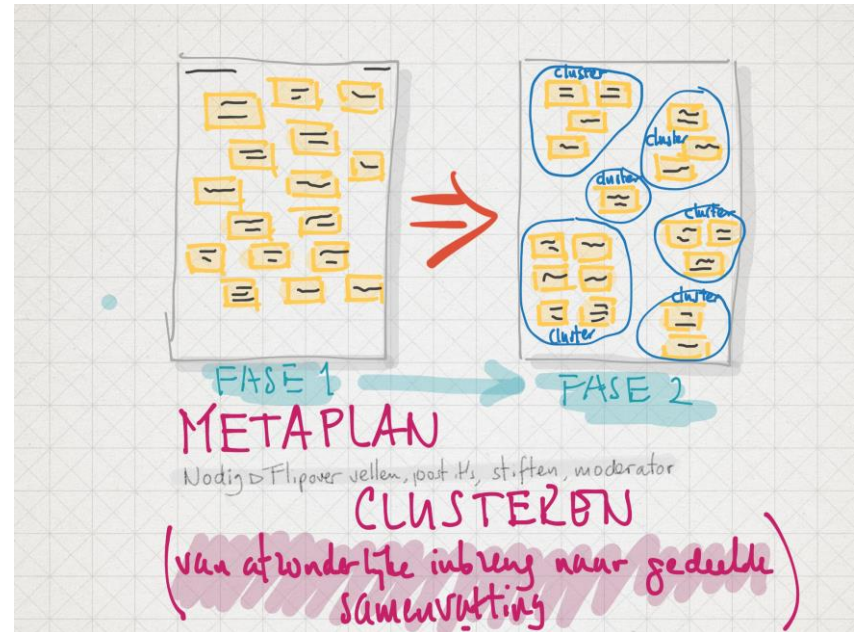 cluster
cluster
cluster
cluster
cluster
cluster
FASE 1
FASE 2
METAPLAN
Nodig ▷ Flipover vellen, post its, stiften, moderator
CLUSTEREN
(van afzonderlijke inbreng naar gedeelde
samenvatting)